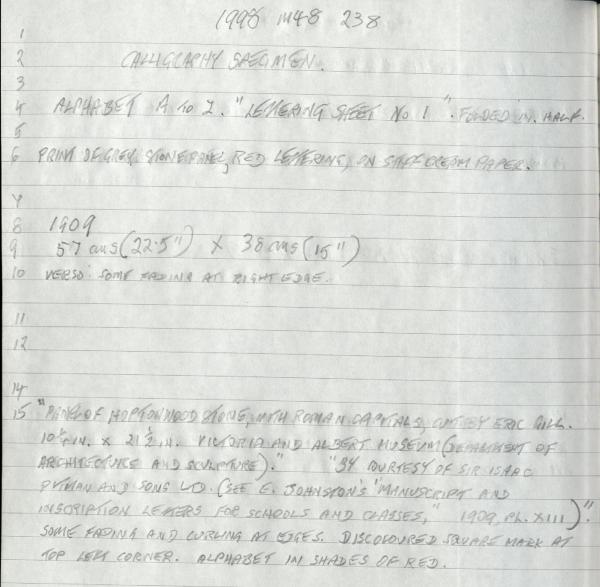 1998 M48 238
1
2 CALLIGRAPHY SPECIMEN.
3
4 ALPHABET A TO Z. "LETTERING SHEET No 1". FOLDED IN HALF.
5
6 PRINT OF GREY STONE PANEL, RED LETTERING, ON STIFF CREAM PAPER.
7
8 1909
9 57 cms (22.5") X 38 cms (15")
10 VERSO: SOME FADING AT RIGHT EDGE.
11
12
14
15 "PANEL OF HOPTONWOOD STONE, WITH ROMAN CAPITALS, CUT BY ERIC GILL.
10 ¼ IN. X 21 ½ IN. VICTORIA AND ALBERT MUSEUM (DEPARTMENT OF
ARCHITECTURE AND SCULPTURE)." "BY COURTESY OF SIR ISAAC
PITMAN AND SONS LTD. (SEE E. JOHNSTON'S "MANUSCRIPT AND
INSCRIPTION LETTERS FOR SCHOOLS AND CLASSES," 1909, PL. XIII)".
SOME FADING AND CURLING AT EDGES. DISCOLOURED SQUARE MARK AT
TOP LEFT CORNER. ALPHABET IN SHADES OF RED.